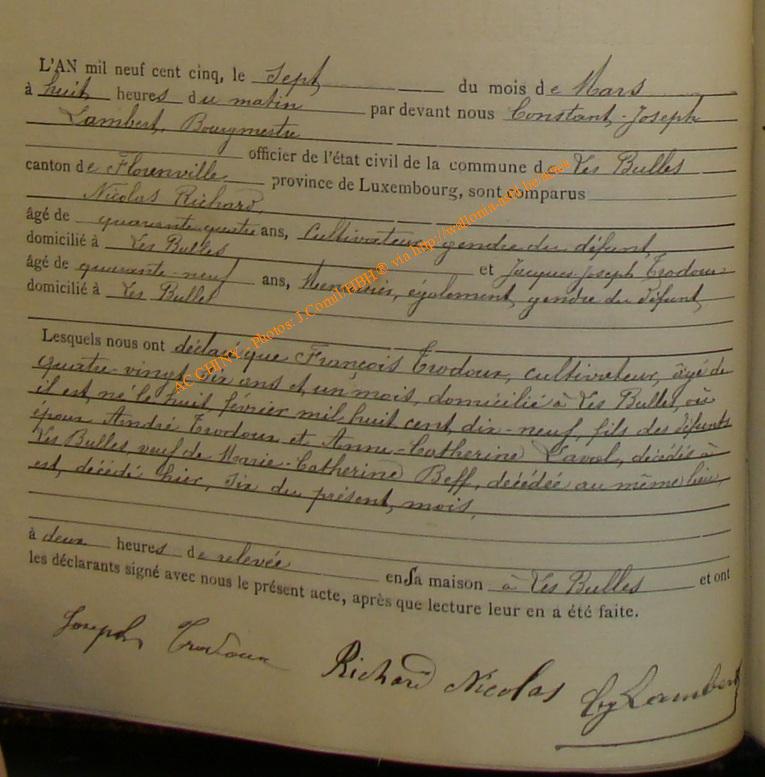 L'AN mil neuf cent cinq, le sept du mois de Mars
à huit heures du matin par devant nous Constant-Joseph
Lambert, Bourgmestre
officier de l'état civil de la commune de Les Bulles
canton de Florenville province de Luxembourg, sont comparus
Nicolas Richard,
âgé de quarante-quatre ans, Cultivateur, gendre du défunt,
domicilié à Les Bulles et Jacques-Joseph Trodoux
âgé de quarante-neuf ans, également, gendre du défunt,
domicilié à Les Bulles
Lesquels nous ont déclaré que François Trodoux, cultivateur, âgé de
quatre-vingt six ans et un mois, domicilié à Les Bulles, où
il est né le huit février mil huit cent dix-neuf, fils des défunts
époux André Trodoux et Anne-Catherine décédés à
Les Bulles, veuf de Marie-Catherine Beff, décédée au même lieu,
est décédé hier, six du présent mois,
à deux heures de relevée en sa maison à Les Bulles et ont
les déclarants signé avec nous le présent acte, après que lecture leur en a été faite.
Joseph Trodoux Richard Nicolas Lambert
ACCHJNY - photos: J.Comil/HBH® via http://wallonia-